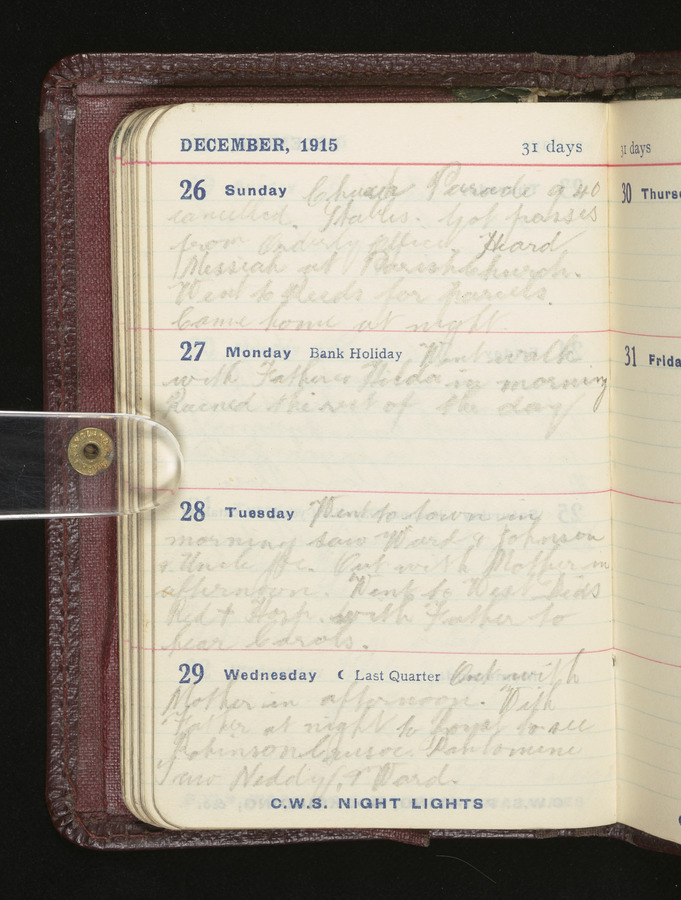 DECEMBER, 1915 31 days
26 Sunday Church Parade 9 40
cancelled. Stables. Got passes
from Orderly office. Heard
Messiah at Parish Church.
Went to Leeds for parcels.
Came home at night.
27 Monday Bank Holiday Went walk
with Father & Hilda in morning
Rained the rest of the day
28 Tuesday Went to town in
morning saw Ward & Johnson
& Uncle Out with Mother in
afternoon. Went to West Leeds
Red + Hosp. with Father to
hear Carols.
29 Wednesday ☾ Last Quarter Out with
Mother in afternoon. With
Father at night to Royal to see
Robinson Crusoe Pantomime
Saw Neddy & Ward.
C.W.S. NIGHT LIGHTS
31 days
30 Thurs
31 Frida